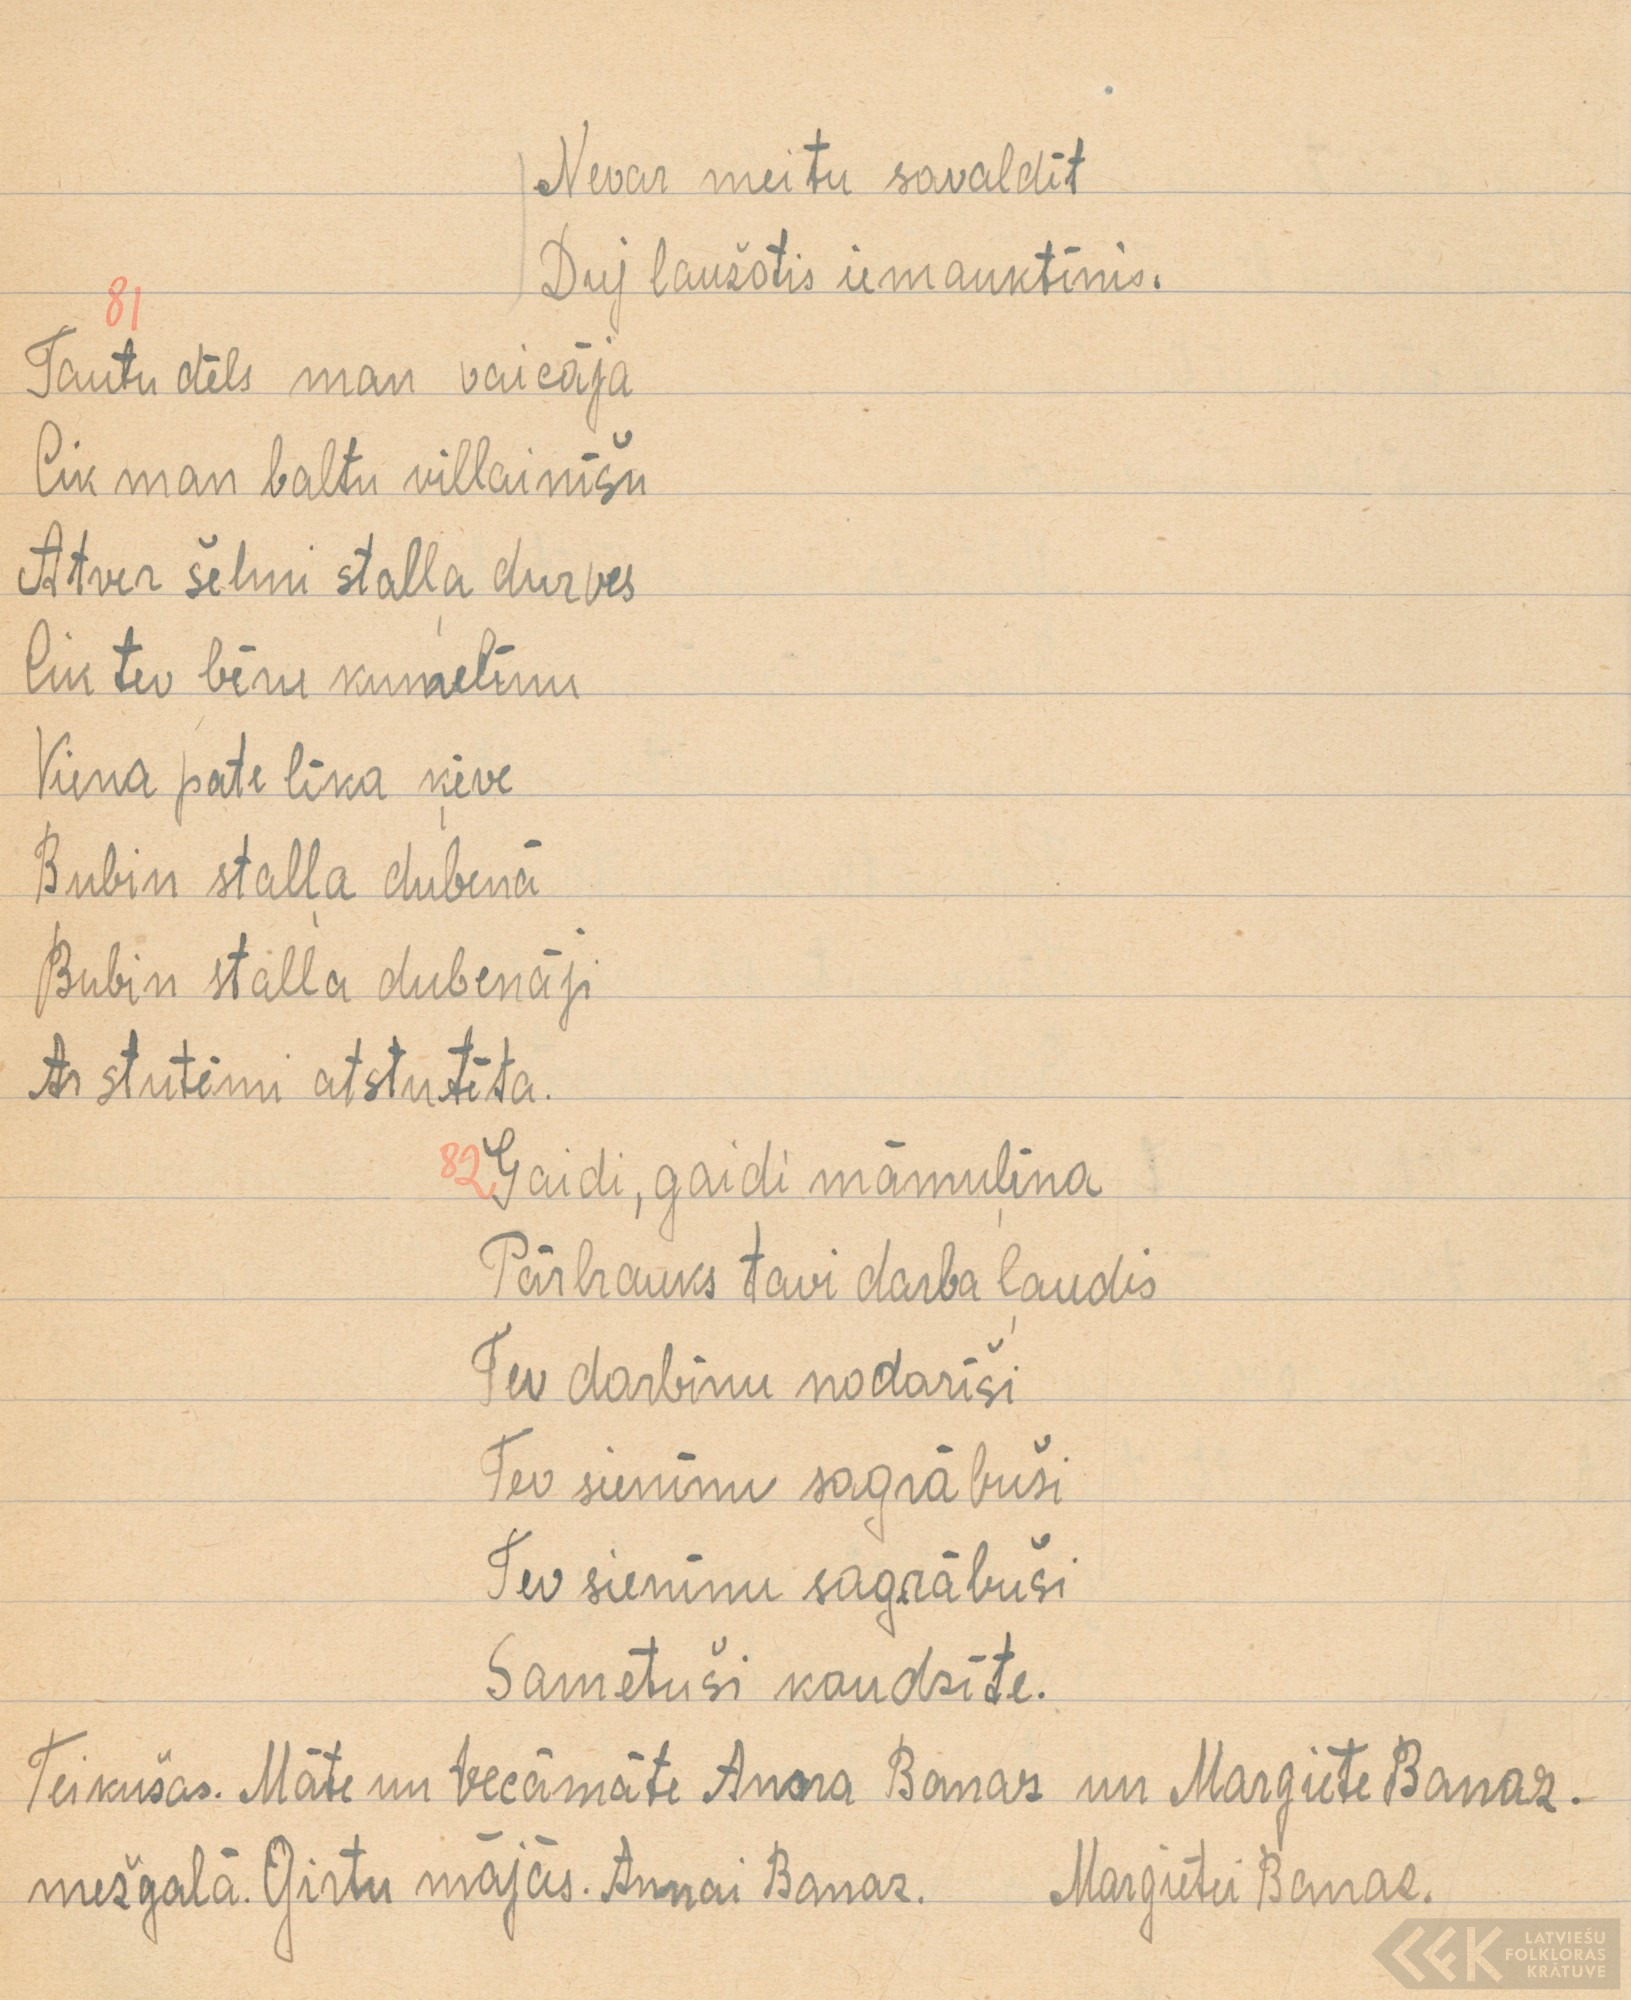 Nevar meitu savaldīt
Duj laužotis iemauktīnis.
81
Tautu dēls man vaicāja
Cik man baltu villainīšu
Atver šelmi staļļa durves
Cik tev bēru kumelīnu
Viena pate līka ķēve
Bubin staļļa dubenā
Bubin staļļa dubenāji
Ar stutēmi atstutēta.
82 Gaidi, gaidi māmuļīna
Pārbrauks tavi darba ļaudis
Tev darbīnu nodarīši
Tev sienīnu sagrābuši
Tev sienīnu sagrābuši
Sametuši kaudzīte.
Teikušas. Māte un vecāmāte Anna Banaz un Margiete Banaz.
mežgalā. Ģirtu mājās. Annai Banaz. Margietei Banaz.
LATVIEŠU
FOLKLORAS
KRĀTUVE